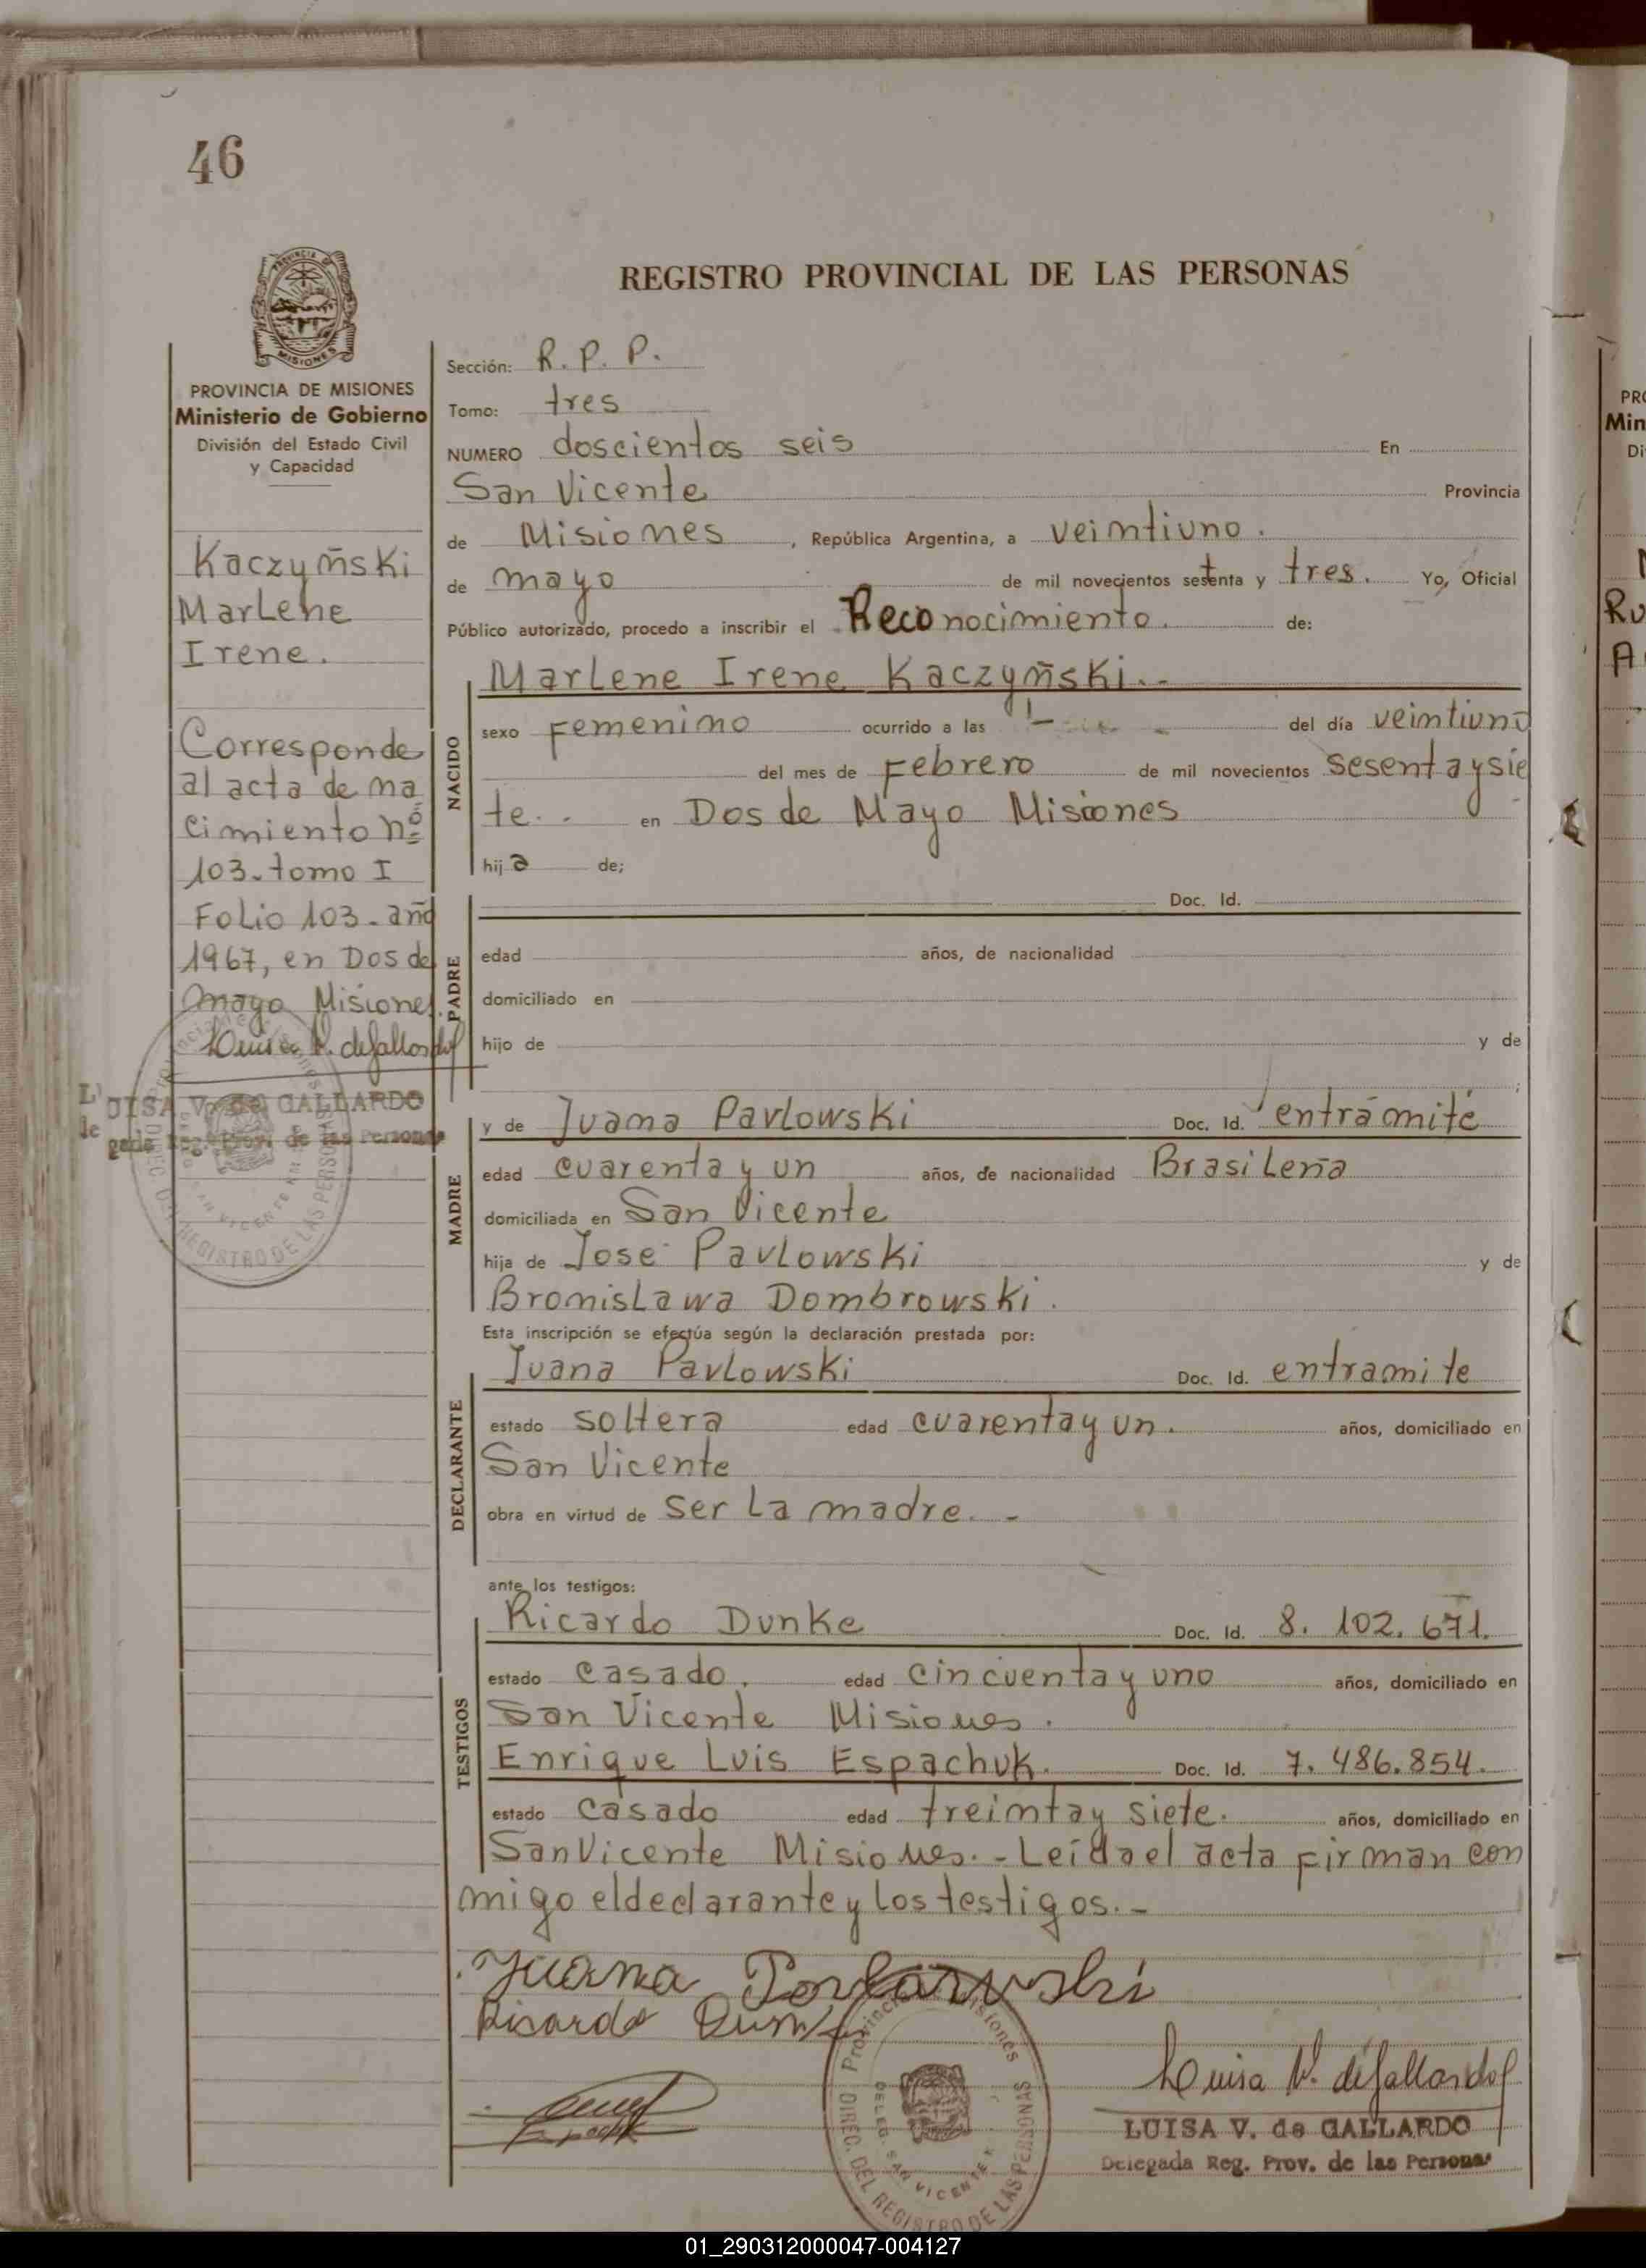 46
PROVINCIA DE MISIONES
Ministerio de Gobierno
División del Estado Civil
y Capacidad
Kaczym̃ski
Marlene
Irene.
Corresponde
al acta de na
cimiento nº
103. tomo I
Folio 103 - año
1967, en Dos de
mayo Misiones.
Luisa V. de Gallardo
LUISA V. de GALLARDO
Reg. Prov. de las Personas
REGISTRO PROVINCIAL DE LAS PERSONAS
Sección: R. P. P.
Tomo: tres
NUMERO doscientos seis En
San Vicente Provincia
de Misiones, República Argentina, a veintiuno.
de mayo de mil novecientos setenta y tres. Yo, Oficial
Público autorizado, procedo a inscribir el Reconocimiento. de:
NACIDO
Marlene Irene Kaczyñski.-
sexo Femenino ocurrido a las del día veintiuno
del mes de Febrero de mil novecientos sesentaysie
te.. en Dos de Mayo Misiones
hija de;
PADRE
Doc. Id.
edad años, de nacionalidad
domiciliado en
hijo de y de
;
MADRE
y de Juana Pavlowski Doc. Id. entrámite
edad cuarenta y un años, de nacionalidad Brasileña
domiciliada en San Vicente
hija de José Pavlowski y de
Bronislawa Dombrowski.
Esta inscripción se efectúa según la declaración prestada por:
DECLARANTE
Juana Pavlowski Doc. Id. entramite
estado soltera edad cuarentay un. años, domiciliado en
San Vicente
obra en virtud de ser la madre. -
ante los testigos:
TESTIGOS
Ricardo Dunke Doc. Id. 8. 102. 671.
estado casado. edad cincuenta y uno años, domiciliado en
San Vicente Misiones.
Enrique Luis Espachuk. Doc. Id. 7. 486.854.
estado casado edad treintay siete. años, domiciliado en
San Vicente Misiones.- Leída el acta firman con
migo el declarante y los testigos.-
Juana Pavlowski
Ricardo Dunke
Luisa V. de Gallardo
LUISA V. de GALLARDO
Delegada Reg. Prov. de las Personas
Provincia de Misiones
DIREC. DEL REGISTRO DE LAS PERSONAS
DELEG. SAN VICENTE
PRO
Min
Di
Ru
A
01_290312000047-004127